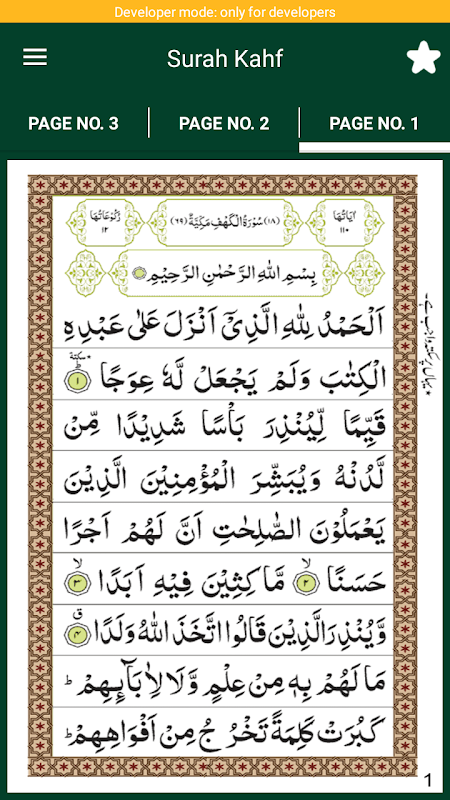 Developer mode: only for developers
Surah Kahf
PAGE NO. 3
PAGE NO. 2
PAGE NO. 1
اٰيَاتُهَا ١١٠
(١٨) سُوْرَةُ الْكَهْفِ مَكِّيَّةٌ (٦٩)
رُكُوْعَاتُهَا ١٢
بِسْمِ اللّٰهِ الرَّحْمٰنِ الرَّحِيْمِ
اَلْحَمْدُ لِلّٰهِ الَّذِیْۤ اَنْزَلَ عَلٰی عَبْدِهِ
الْكِتٰبَ وَلَمْ يَجْعَلْ لَّهٗ عِوَجًا ١ سكتة
قَيِّمًا لِّيُنْذِرَ بَاْسًا شَدِيْدًا مِّنْ
لَّدُنْهُ وَيُبَشِّرَ الْمُؤْمِنِيْنَ الَّذِيْنَ
يَعْمَلُوْنَ الصّٰلِحٰتِ اَنَّ لَهُمْ اَجْرًا
حَسَنًا ۙ ٢ مَّاكِثِيْنَ فِيْهِ اَبَدًا ۙ ٣
وَّيُنْذِرَ الَّذِيْنَ قَالُوا اتَّخَذَ اللّٰهُ وَلَدًا ٤
مَا لَهُمْ بِهٖ مِنْ عِلْمٍ وَّلَا لِاٰبَآئِهِمْ ؕ
كَبُرَتْ كَلِمَةً تَخْرُجُ مِنْ اَفْوَاهِهِمْ ؕ
1